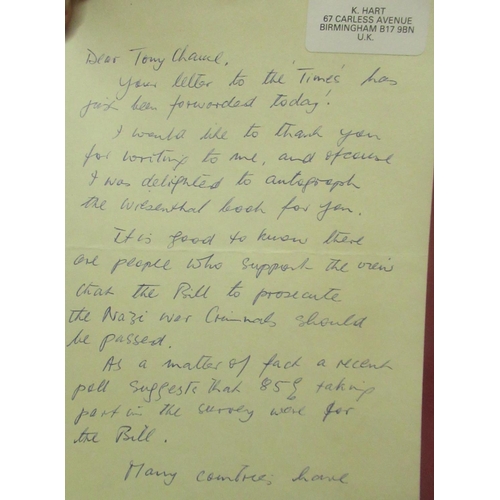 K. HART
67 CARLESS AVENUE
BIRMINGHAM B17 9BN
U.K.
Dear Tony Chance,
Your letter to the 'Times' has
just been forwarded today!
I would like to thank you
for writing to me, and ofcourse
I was delighted to autograph
the Wiesenthal book for you.
It is good to know there
are people who support the view
that the Bill to prosecute
the Nazi war Criminals should
be passed.
As a matter of fact a recent
poll suggests that 85% taking
part in the survey were for
the Bill.
Many countries have